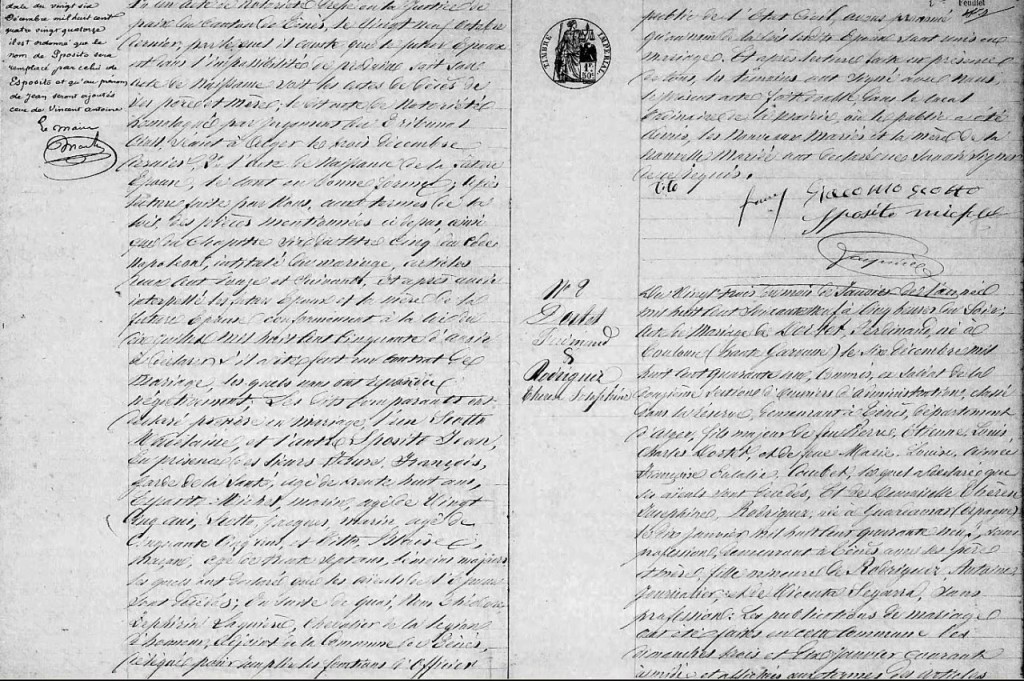 date du vingt six
Décembre mil huit cent
quatre vingt quatorze
il est ordonné que le
nom de Sposito sera
remplacé par celui de
Esposito et qu'au prénom
de Jean seront ajoutés
ceux de Vincent Antoine
Le Maire
de Notoriété
paix du Canton de Ténès, le vingt
dernier, par lequel il conste que le futur époux
est dans l'impossibilité de produire soit son
acte de Naissance soit les actes de Décès de
ses père et mère, le dit acte de Notoriété
homologué par jugement du Tribunal
Civil, séant à Alger le trois Décembre
dernier, l'acte de Naissance de la future
Épouse, le tout en bonne forme; après
lecture faite par Nous, aux termes de la
loi, des pièces mentionnées ci dessus, ainsi
que du Chapitre six du titre Cinq du Code
Napoléon, intitulé du mariage, articles
et après avoir
interpellé les futurs époux et la mère de la
future épouse conformément à la loi du
dix juillet mil huit cent cinquante d'avoir
à déclarer s'il a été fait un contrat de
mariage, les quels nous ont répondu
négativement, Les dits Comparants ont
déclaré prendre en mariage, l'un Scotto
et l'autre Sposito Jean,
en présence des sieurs François,
Garde de la Santé, âgé de trente huit ans,
Sposito Michel, marin, âgé de Vingt
cinq ans, Scotto Jacques, marin, âgé de
Cinquante cinq ans, et
Maçon, âgé de trente sept ans, témoins majeurs
les quels ont déclaré que les aïeuls de l'époux
sont décédés; En suite de quoi, Nous
Zéphirin Chevalier de la légion
d'honneur, adjoint de la Commune de Ténès,
délégué pour remplir les fonctions d'Officier
TIMBRE IMPÉRIAL
Feuillet
public de l'Etat Civil, avons prononcé
qu'au nom de la loi les dits Epoux sont unis en
mariage. Et après lecture faite en présence
de tous, les témoins ont signé avec nous
le présent acte fait double dans le local
ordinaire de la Mairie, où le public a été
admis, les Nouveaux Mariés et la mère de la
nouvelle Mariée ont déclaré ne savoir signer
de ce requis.
Giacomo Scotto
Sposito
N° 2
Dortet
Ferdinand
&
Rodriguez
Thérèse Joséphine
Du Vingt trois du mois de Janvier de l'an
mil huit cent soixante neuf à cinq heures du soir;
Acte de Mariage de Dortet, Ferdinand, né à
Toulouse (haute Garonne) le six décembre mil
huit cent quarante un, et soldat de la
onzième section d'ouvriers d'administration, classé
dans la réserve, demeurant à Ténès, département
d'Alger, fils majeur de feu Pierre, Etienne, Louis,
Charles Dortet, et de feue Marie, Louise, Aimée
Françoise Eulalie, Loubet, lequel a déclaré que
ses aïeuls sont décédés, Et de Demoiselle Thérèse
Joséphine, Rodriguez, née à Guardamar (Espagne)
le dix janvier mil huit cent quarante neuf, sans
profession, demeurant à Ténès avec ses père
et mère, fille mineure de Rodriguez Antoine
journalier, et de Vicenta Segarra, sans
profession: Les publications de mariage
ont été faites en cette Commune les
dimanches trois et dix janvier courant
à midi et affichées aux termes des articles